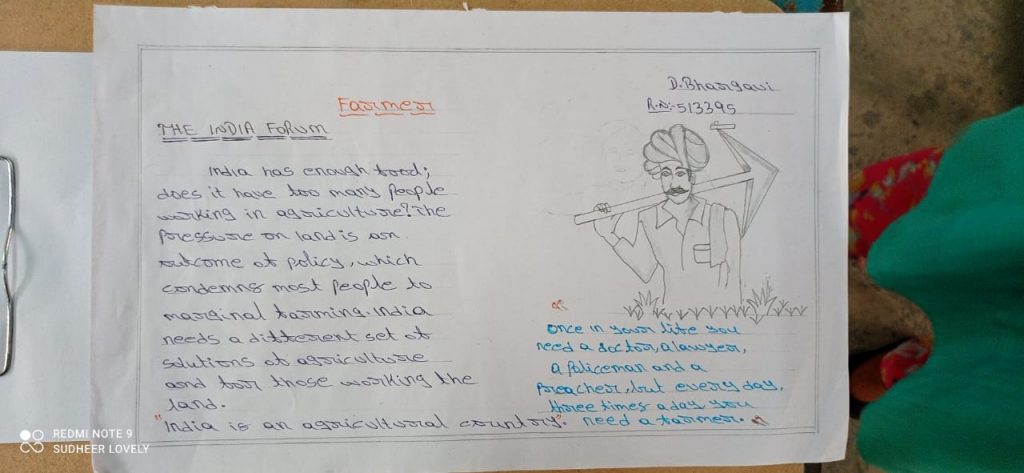 Farmer
D.Bhargavi
R.No:-513395
THE INDIA FORUM
India has enough food;
does it have too many people
working in agriculture? The
pressure on land is an
outcome of policy, which
condemns most people to
marginal farming. India
needs a different set of
solutions of agriculture
and for those working the
land.
"India is an agricultural country".
"Once in your life you
need a doctor, a lawyer,
a policeman and a
preacher, but every day,
three times a day you
need a farmer."
REDMI NOTE 9
SUDHEER LOVELY